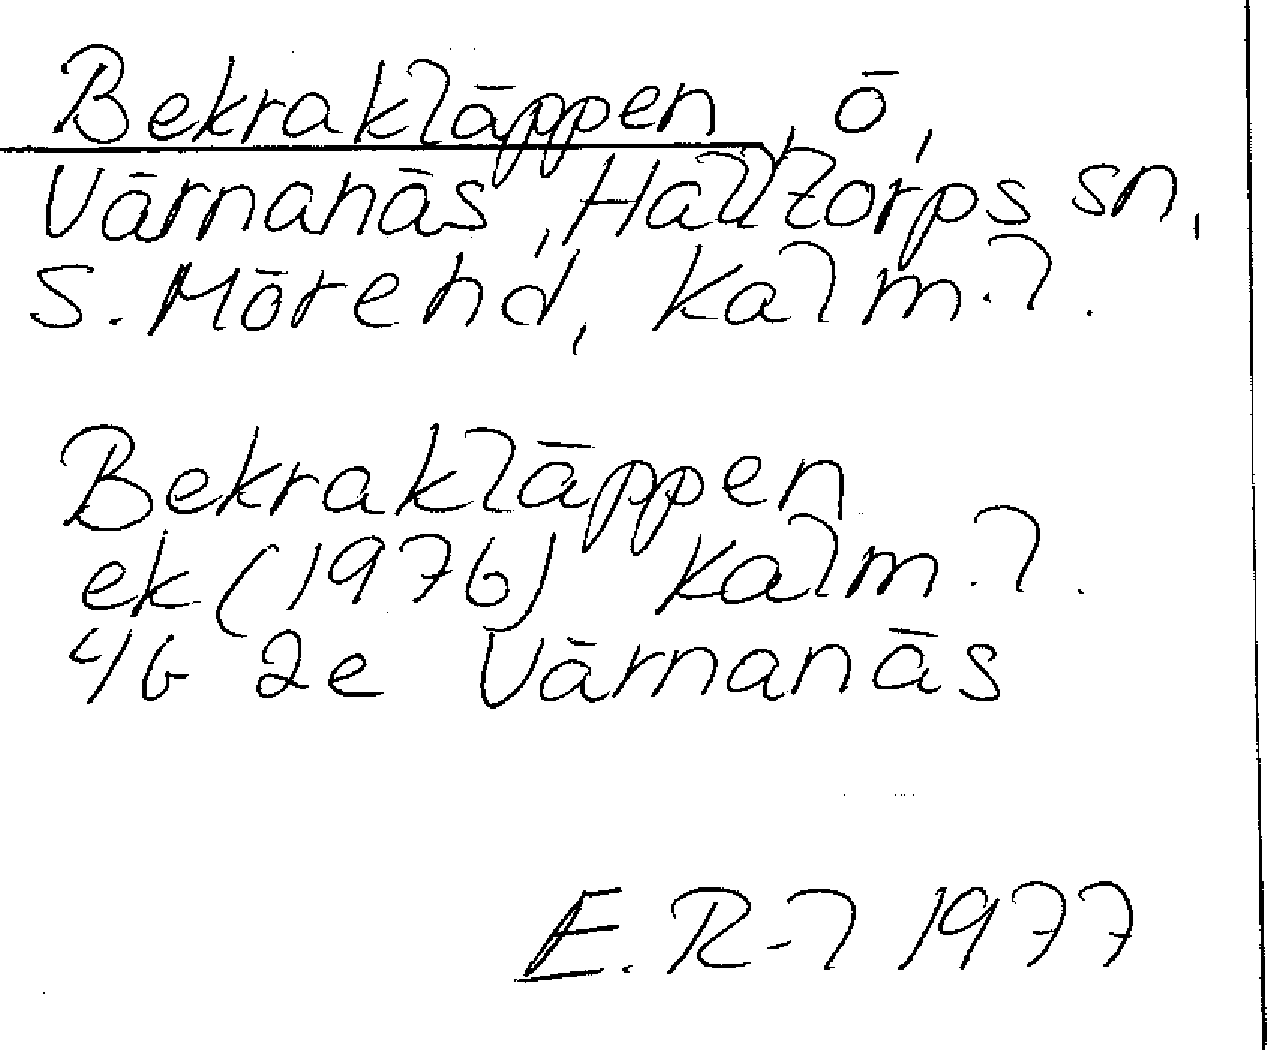 Bekrakläppen, ö,
Värnanäs, Halltorps sn,
S. Möre hd, Kalm. l.
Bekrakläppen
ek (1976) Kalm. l.
4G 2e Värnanäs
E. R-l 1977